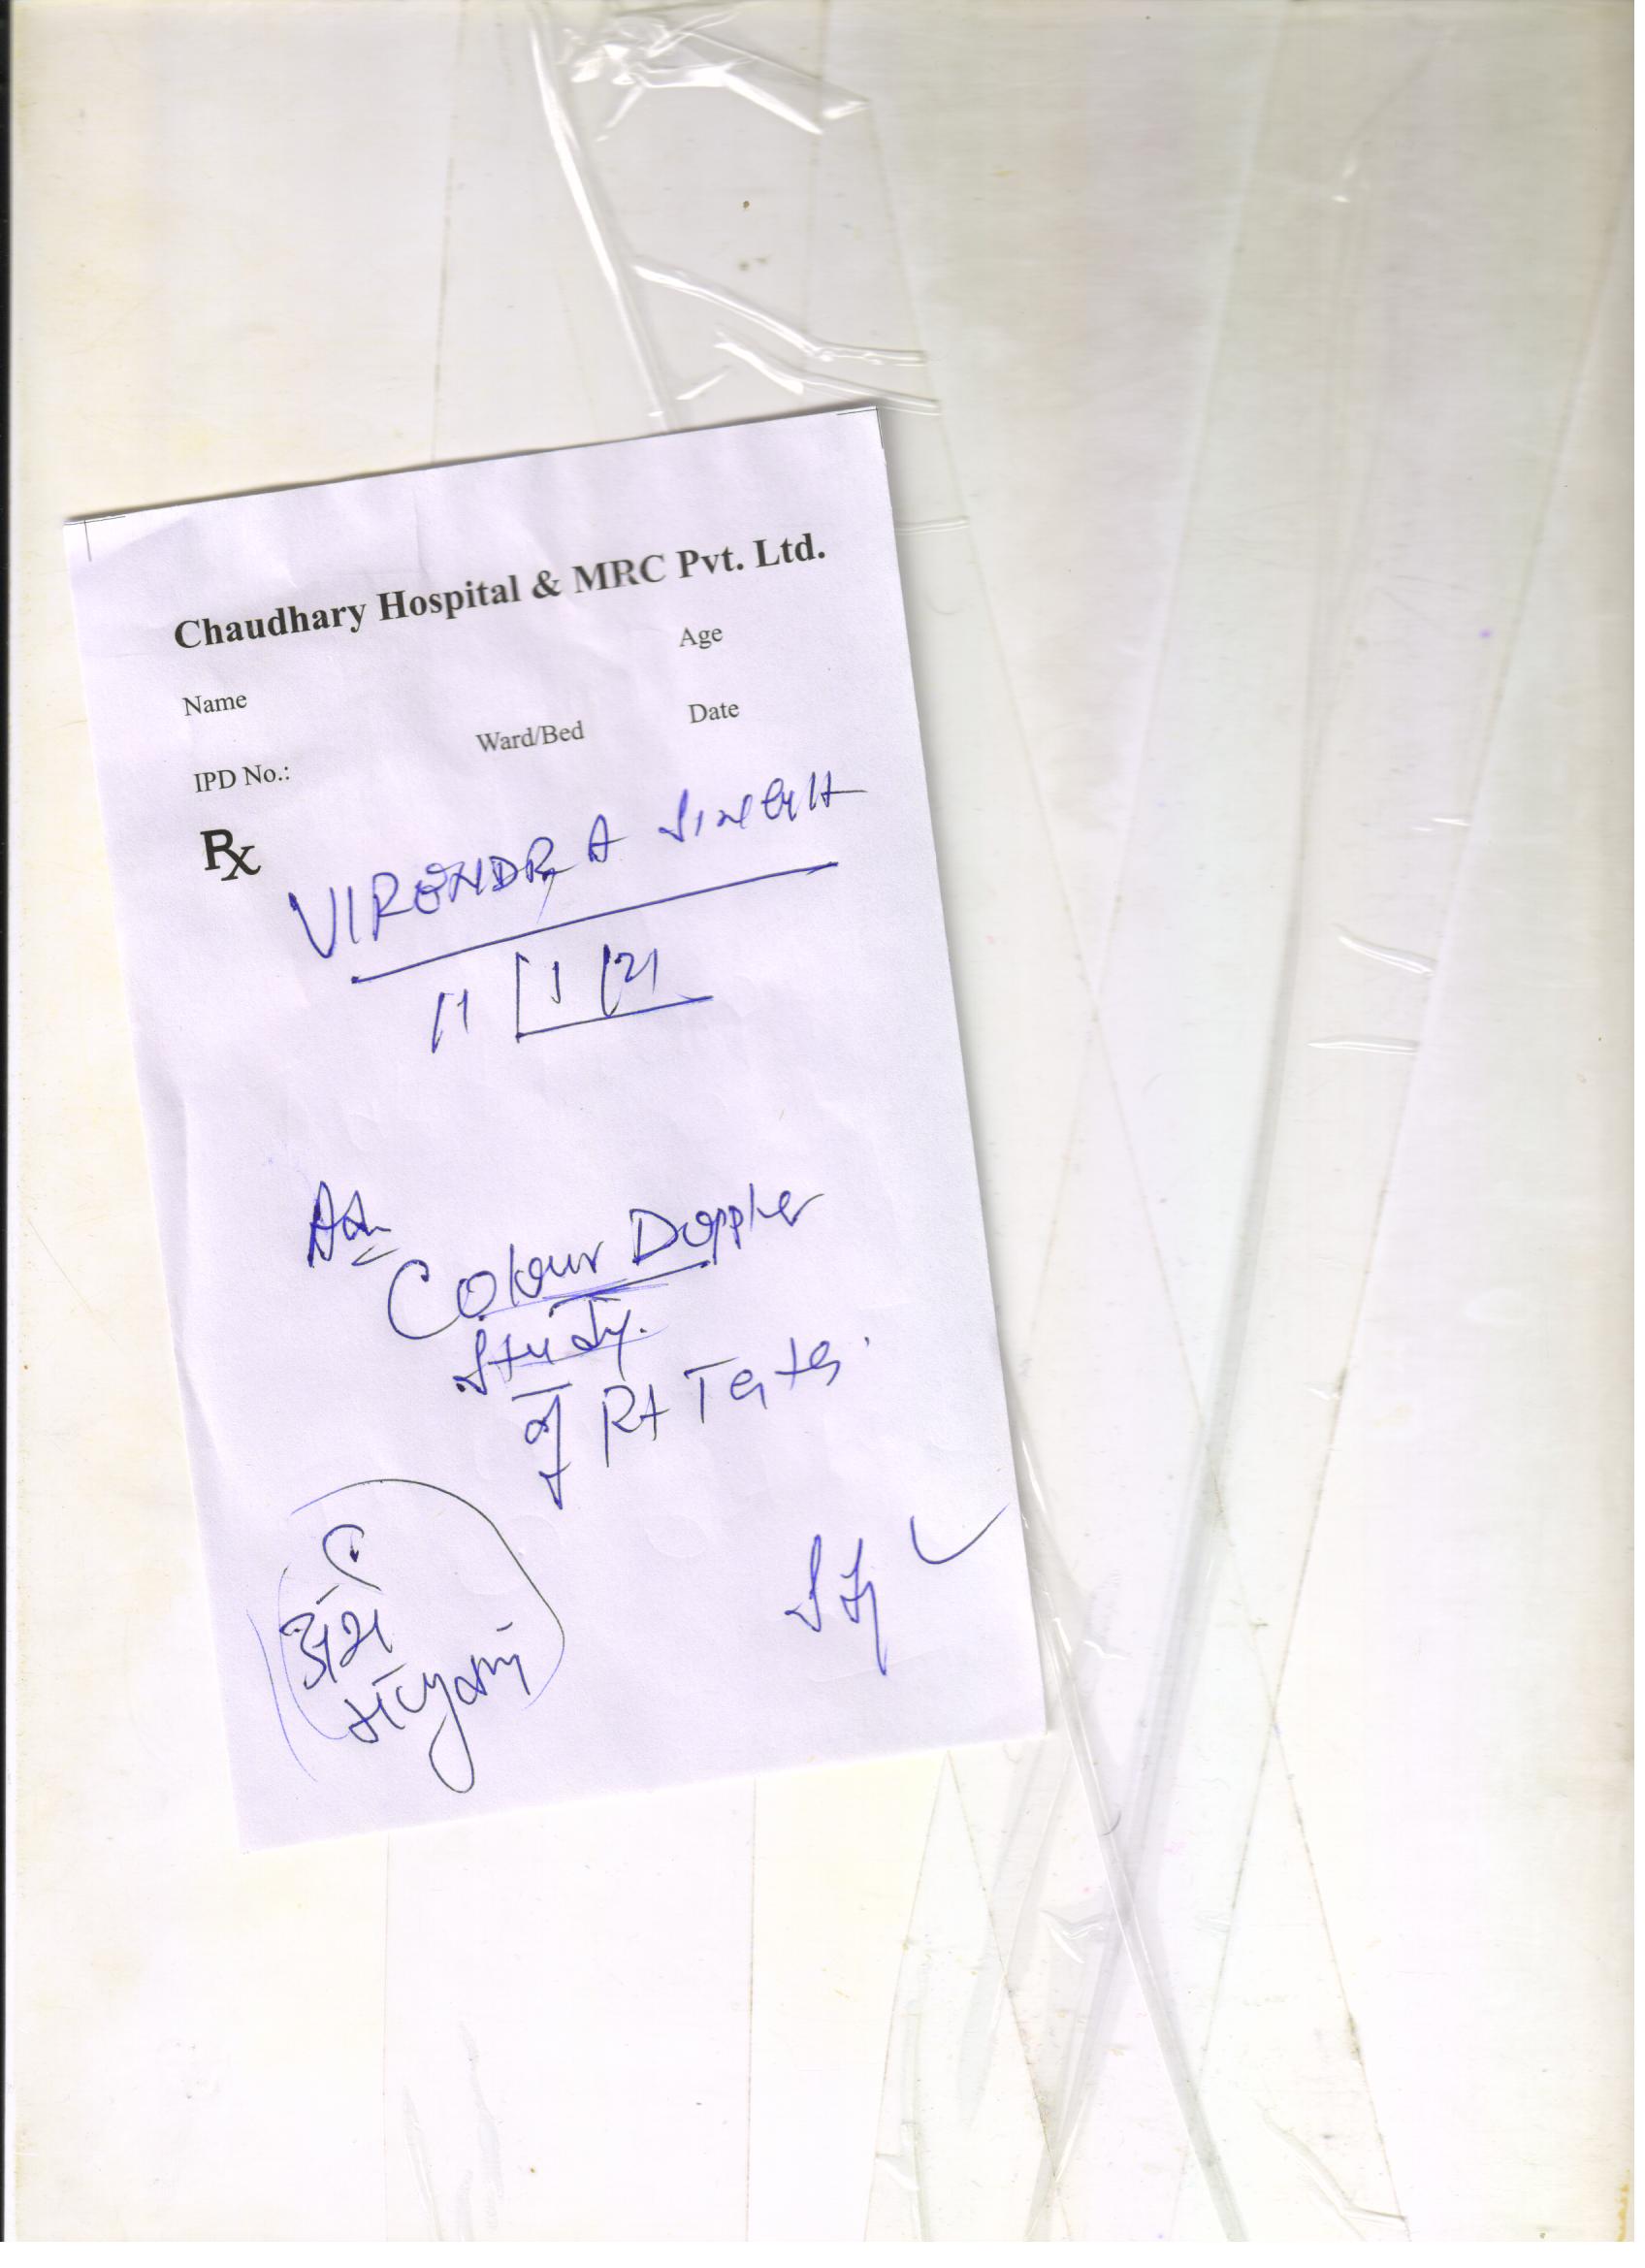 Chaudhary Hospital & MRC Pvt. Ltd.
Name Age
IPD No.: Ward/Bed Date
Rx
VIRENDRA SINGH
11/1/21
Adv
Colour Doppler
Study.
of Rt Testis.